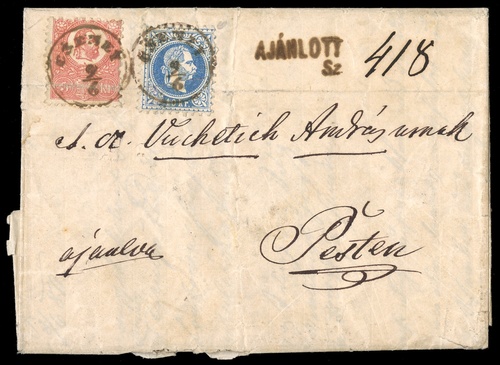 AJÁNLOTT
Sz 418
9/6
9/6
Vuchetich András urnak
ajánlva
Pesten